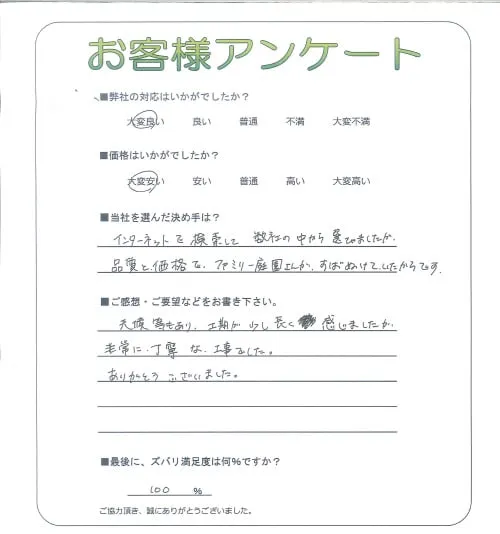 お客様アンケート
■弊社の対応はいかがでしたか？
大変良い 良い 普通 不満 大変不満
■価格はいかがでしたか？
大変安い 安い 普通 高い 大変高い
■当社を選んだ決め手は？
インターネットで検索して 数社の中から選びましたが、
品質と価格で、ファミリー庭園さんが、ずばぬけていたからです。
■ご感想・ご要望などをお書き下さい。
天候等もあり、工期が少し長く 感じましたが、
非常に丁寧な工事でした。
ありがとうございました。
■最後に、ズバリ満足度は何％ですか？
100 ％
ご協力頂き、誠にありがとうございました。